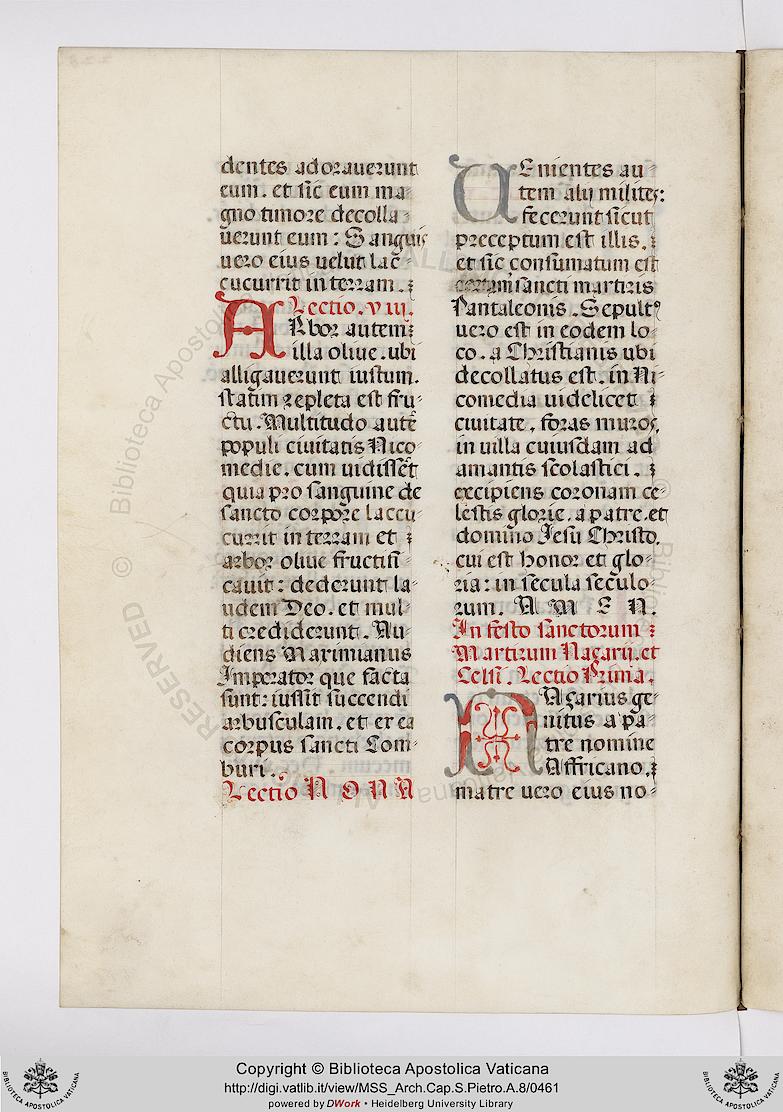 dentes adorauerunt
eum. et sic eum ma-
gno timore decolla-
uerunt eum: Sanguis
uero eius uelut lac-
cucurrit in terram.
Lectio. viii.
ARbor autem
illa oliue. ubi
alligauerunt iustum.
statim repleta est fru-
ctu. Multitudo autē
populi ciuitatis Nico-
medie. cum uidissēt
quia pro sanguine de
sancto corpore lac cu-
currit in terram et
arbor oliue fructifi-
cauit: dederunt la-
udem Deo. et mul-
ti crediderunt. Au-
diens Maximianus
Imperator que facta
sunt: iussit succendi
arbusculam. et ex ea
corpus sancti Com-
buri.
Lectio NONA
UEnientes au-
tem alij milites:
fecerunt sicut
preceptum est illis.
et sic consumatum est
certamē sancti martiris
Pantaleonis. Sepultꝰ
uero est in eodem lo-
co. a Christianis ubi
decollatus est. in Ni-
comedia uidelicet
ciuitate. foras muros.
in uilla cuiusdam ad
amantis scolastici.
excipiens coronam ce-
lestis glorie. a patre. et
domino Jesu Christo.
cui est honor et glo-
ria: in secula seculo-
rum. AMEN.
In festo sanctorum
Martirum Naçarij. et
Celsi. Lectio Prima.
NAçarius ge-
nitus a pa-
tre nomine
Affricano.
matre uero eius no-
© Biblioteca Apostolica Vaticana
RESERVED
Copyright © Biblioteca Apostolica Vaticana
http://digi.vatlib.it/view/MSS_Arch.Cap.S.Pietro.A.8/0461
powered by DWork • Heidelberg University Library
BIBLIOTECA APOSTOLICA VATICANA
BIBLIOTECA APOSTOLICA VATICANA